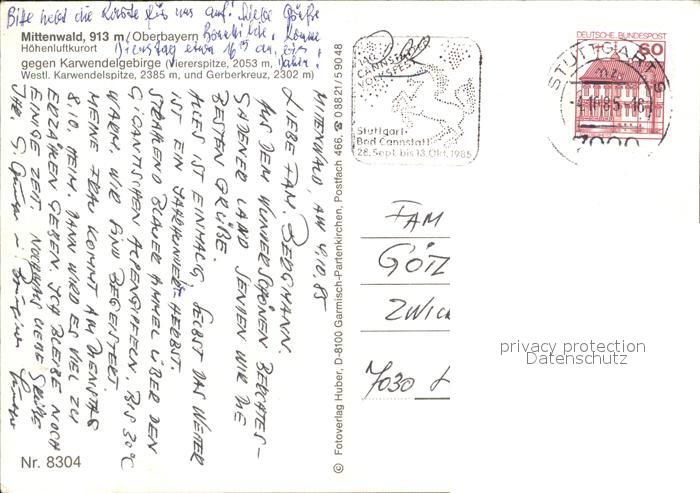 Bitte hebt die Karte für uns auf! Liebe Grüße
Mittenwald, 913 m/Oberbayern
Höhenluftkurort
gegen Karwendelgebirge (Viererspitze, 2053 m,
Westl. Karwendelspitze, 2385 m, und Gerberkreuz, 2302 m)
MITTENWALD, AM 4.10.85
LIEBE FAM. BERGMANN.
AUS DEM WUNDERSCHÖNEN BERCHTES-
GADENER LAND SENDEN WIR DIE
BESTEN GRÜßE.
ALLES IST EINMALIG SELBST DAS WETTER
IST EIN JAHRHUNDERT-HERBST.
STRAHLEND BLAUER HIMMEL ÜBER DEN
GIGANTISCHEN ALPENGIPFELN. BIS 30°C
WARM. WIR SIND BEGEISTERT.
MEINE FRAU KOMMT AM DIENSTAG
8.10. HEIM. DANN WIRD ES VIEL ZU
ERZÄHLEN GEBEN. ICH BLEIBE NOCH
EINIGE ZEIT. NOCHMALS LIEBE GRÜßE
IHR
Nr. 8304
© Fotoverlag Huber, D-8100 Garmisch-Partenkirchen, Postfach 466, ☎ 08821/59048
140.
CANNSTATTER
VOLKSFEST
Stuttgart-
Bad Cannstatt
28. Sept. bis 13. Okt. 1985
DEUTSCHE BUNDESPOST
60
STUTTGART
-4.10.85-18
7000
FAM
GÖTZ
ZWICK
7030
privacy protection
Datenschutz